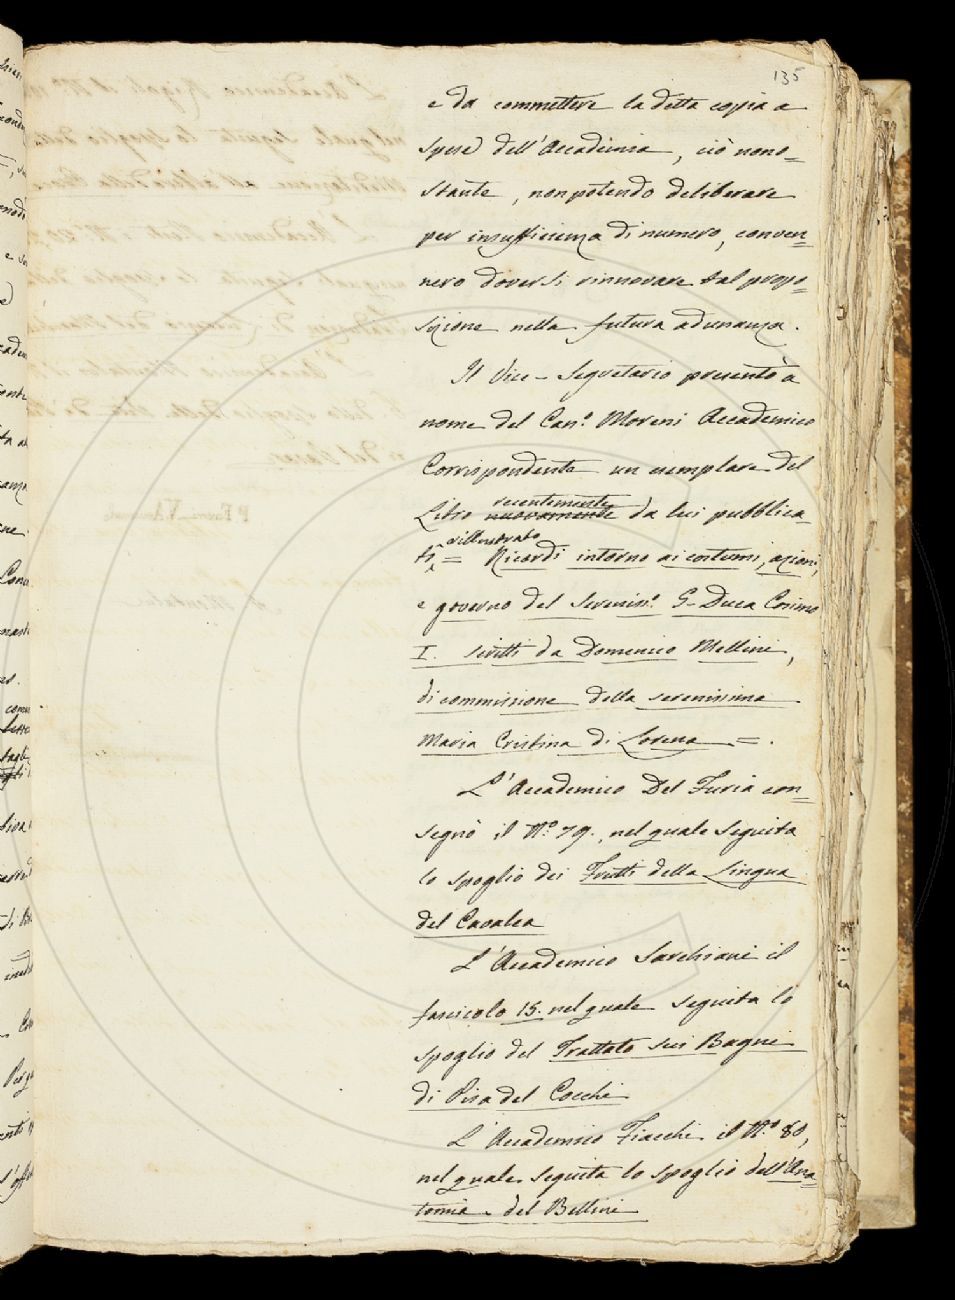 135
e da commettere la detta copia a
spese dell'Accademia, ciò nono=
stante, non potendo deliberare
per insufficienza di numero, conven=
nero doversi rinnovare tal propo=
sizione nella futura adunanza.
Il Vice-Segretario presentò a
nome del Can.º Moreni Accademico
Corrispondente un esemplare del
recentemente
Libro nuovamente da lui pubblica=
e illustrato
to = Ricordi intorno ai costumi, azioni,
e governo del Sereniss.º G-Duca Cosimo
I. scritti da Domenico Mellini,
di commissione della serenissima
Maria Cristina di Lorena =.
L'Accademico Del Furia con=
segnò il N.º 79., nel quale seguita
lo spoglio dei Frutti della Lingua
del Cavalca
L'Accademico Sarchiani il
fascicolo 15. nel quale seguita lo
spoglio del Trattato sui Bagni
di Pisa del Cocchi
L'Accademico Fiacchi il N.º 80,
nel quale seguita lo spoglio dell'Ana=
tomia del Bellini